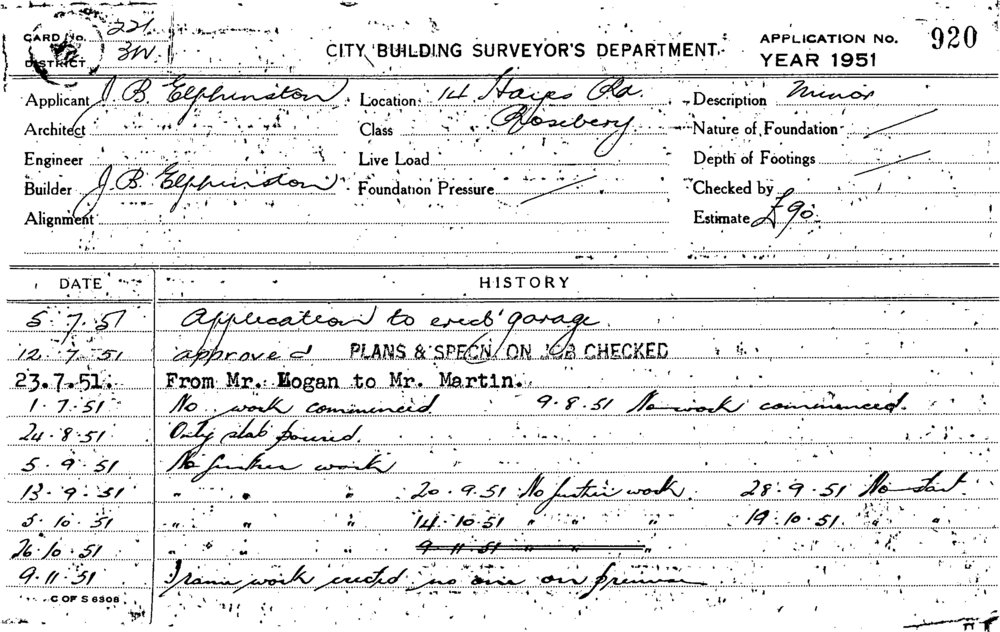 CARD No. 221
DISTRICT 3W
CITY BUILDING SURVEYOR'S DEPARTMENT.
APPLICATION No. 920
YEAR 1951
Applicant J B Elphinston Location 14 Hayes Rd. Description Minor
Architect Class Rosebery Nature of Foundation
Engineer Live Load Depth of Footings
Builder J B Elphinston Foundation Pressure Checked by
Alignment Estimate £90
DATE HISTORY
5.7.51 Application to erect garage.
12.7.51 approved PLANS & SPECN. ON JOB CHECKED
23.7.51. From Mr. Hogan to Mr. Martin.
1.7.51 No work commenced 9.8.51 No work commenced.
24.8.51 Only slab poured.
5.9.51 No further work
13.9.51 " " " 20.9.51 No further work. 28.9.51 No start.
5.10.51 " " " 14.10.51 " " " 19.10.51. " "
26.10.51 " " " 9.11.51 " " "
9.11.51 Frame work erected no one on premises
C OF S 6308